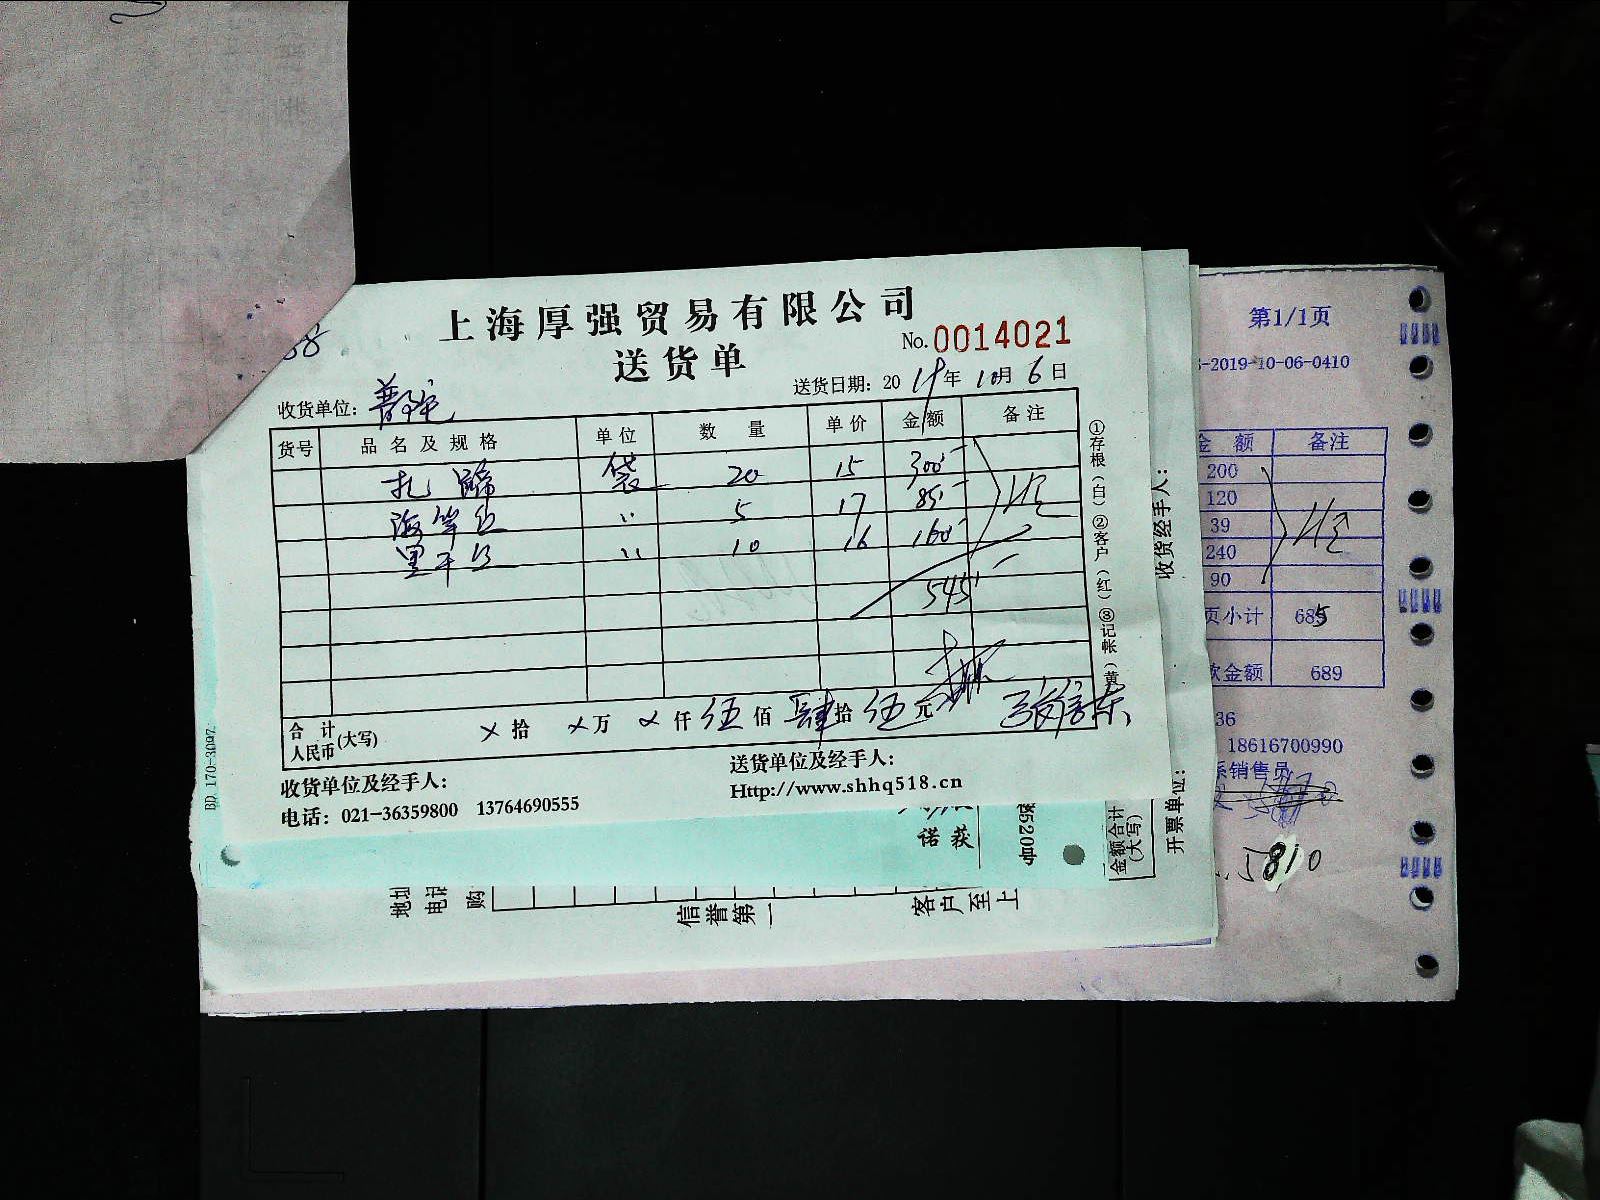 上海厚强贸易有限公司
送货单
No.0014021
收货单位：普陀
送货日期：2019年10月6日
货号 品名及规格 单位 数量 单价 金额 备注
扎蹄 袋 20 15 300
海竿丝 〃 5 17 85
里干丝 〃 10 16 160
545
合计人民币(大写) ×拾 ×万 ×仟 伍佰 肆拾 伍元
收货单位及经手人：
送货单位及经手人：
电话：021-36359800 13764690555
Http://www.shhq518.cn
①存根（白）②客户（红）③记帐（黄
收货经手人：
开票单位：
金额合计(大写)
BD 170-3097
诺获
地址
电话
购
信誉第一
客户至上
第1/1页
-2019-10-06-0410
金额 备注
200
120
39
240
90
页小计 685
款金额 689
36
18616700990
系销售员
5810